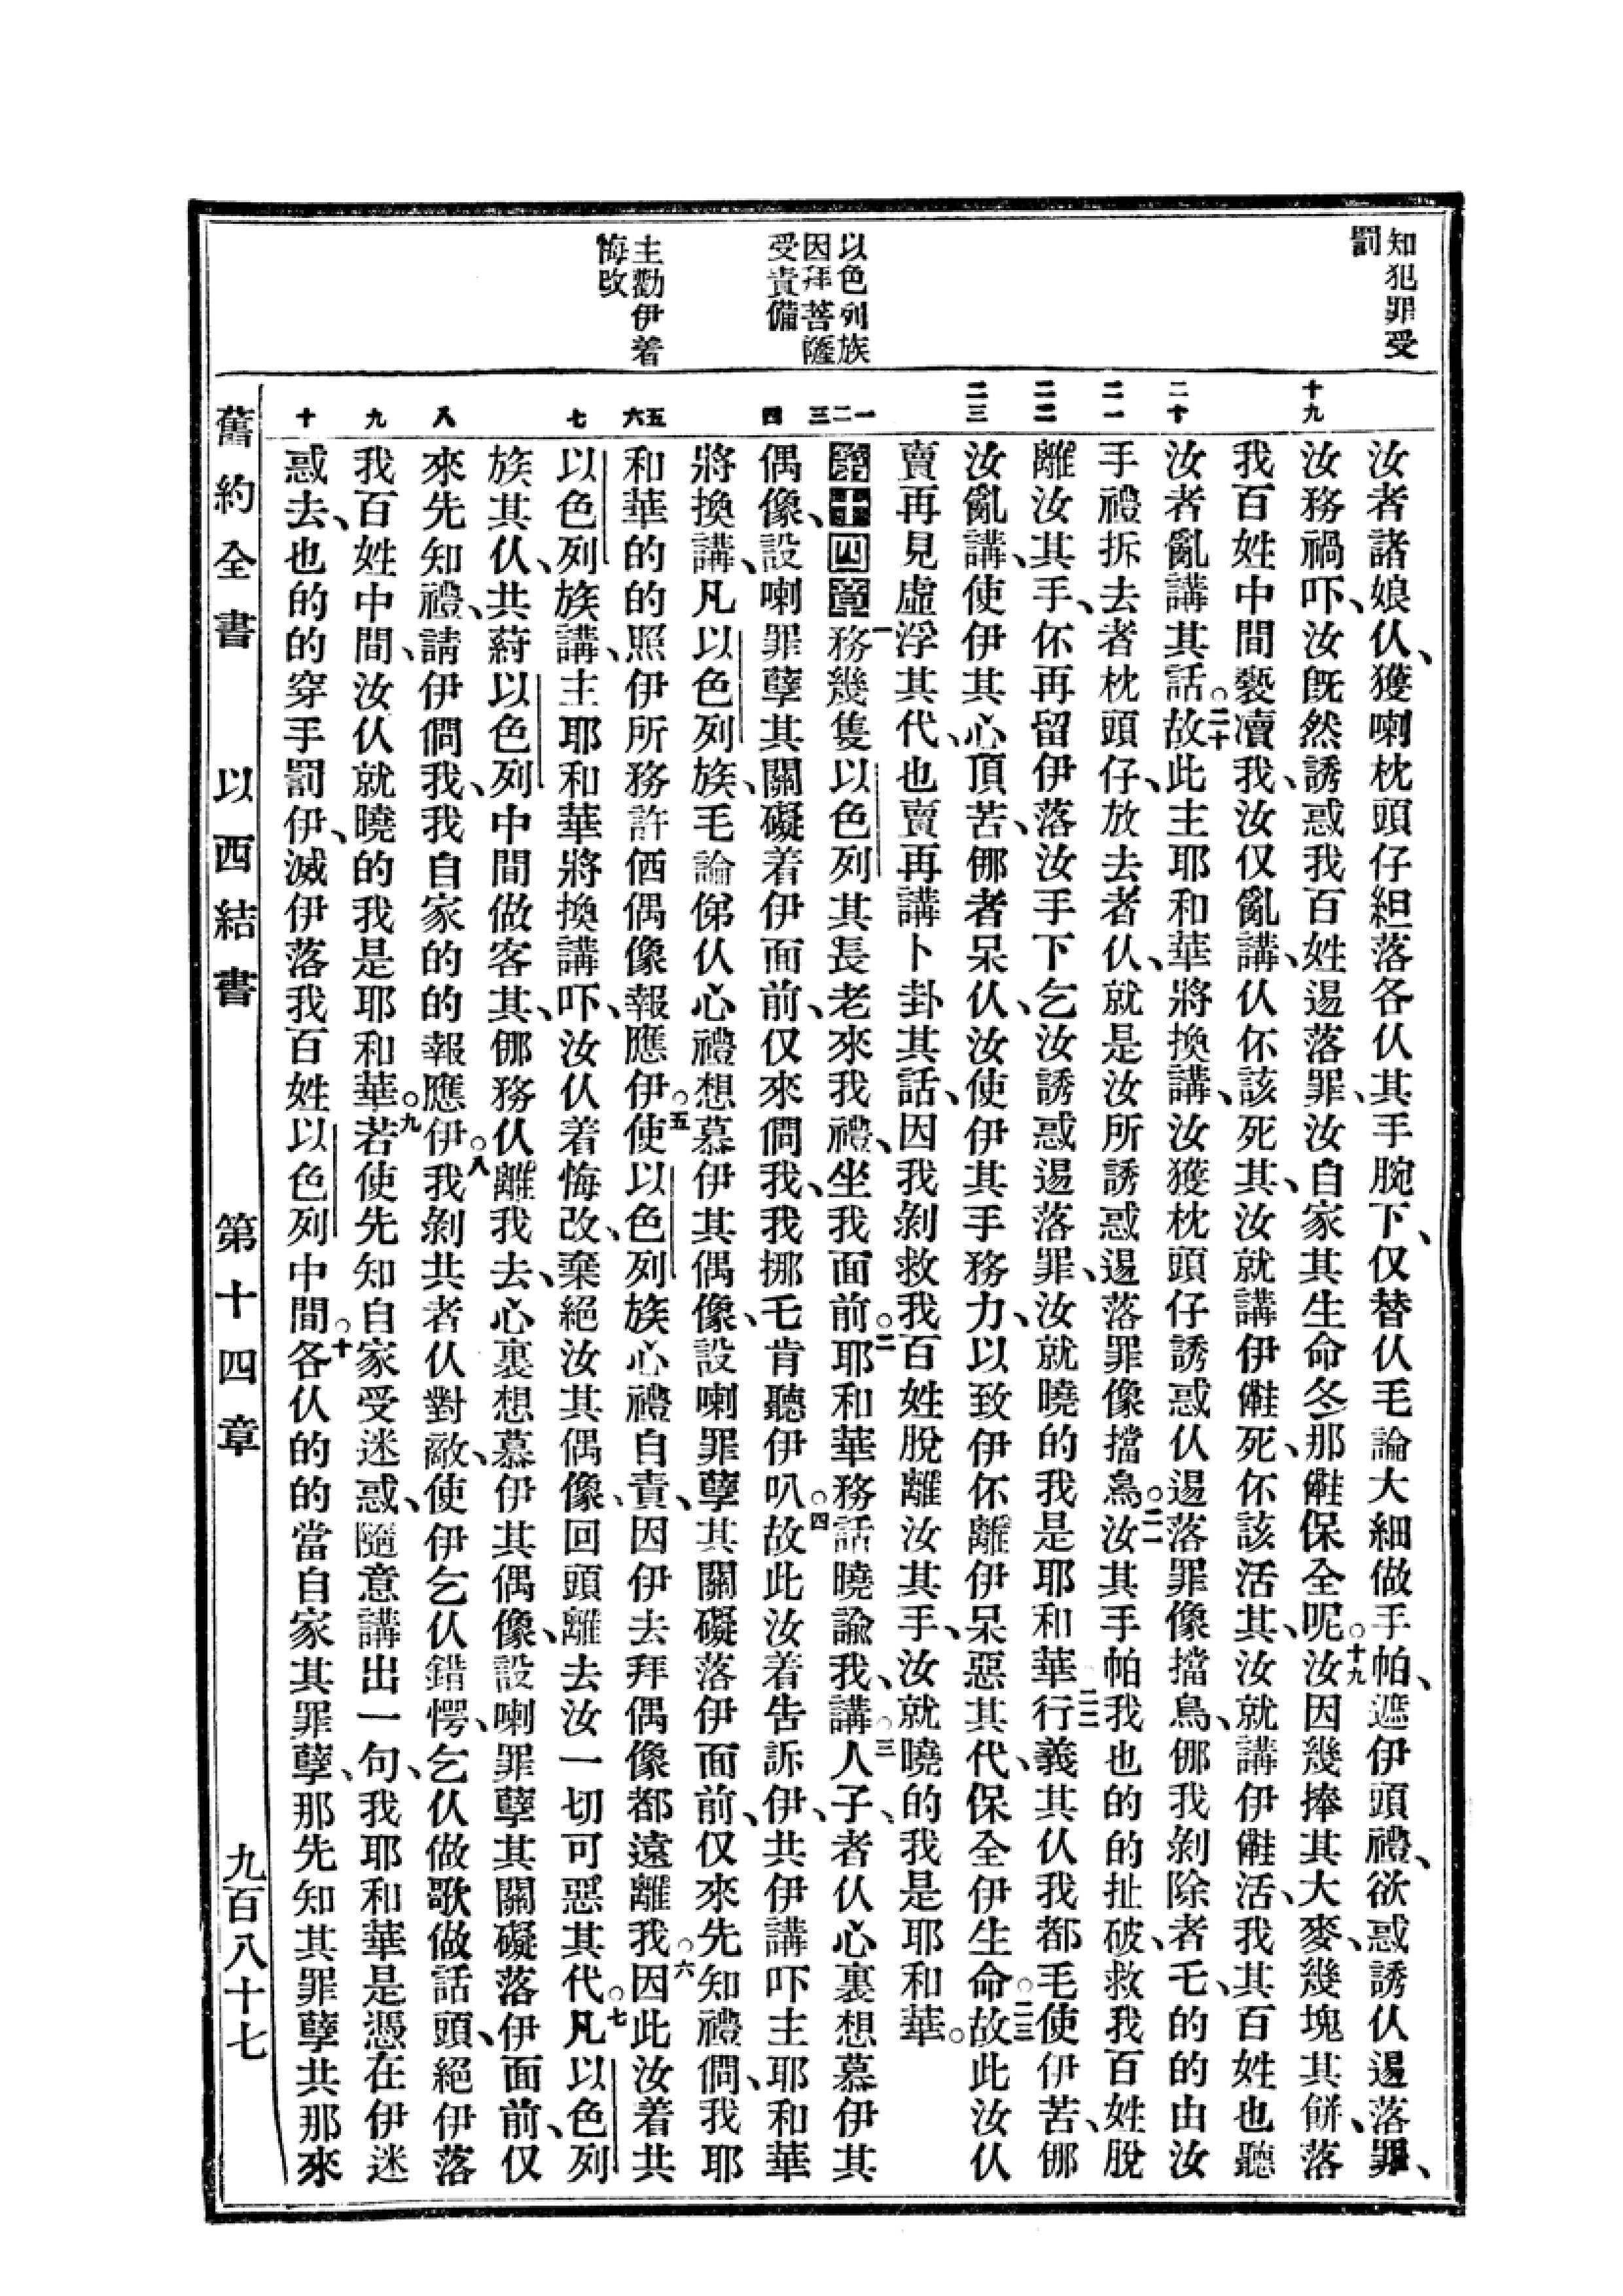 知犯罪受
罰
以色列族
因拜菩薩
受責備
主勸伊着
悔改
十九
二十
二一
二二
二三
一
二
三
四
五
六
七
八
九
十
汝者諸娘仈、獲喇枕頭仔組落各仈其手腕下、仅替仈毛論大細做手帕、遮伊頭禮、欲惑誘仈逿落罪、
汝務禍吓、汝旣然誘惑我百姓逿落罪、汝自家其生命冬那㒕保全呢。十九汝因幾捧其大麥、幾塊其餅、落
我百姓中間褻凟我、汝仅亂講、仈伓該死其、汝就講伊㒕死、伓該活其、汝就講伊㒕活、我其百姓也聽
汝者亂講其話。二十故此主耶和華將換講、汝獲枕頭仔誘惑仈逿落罪像擋鳥、㑚我剝除者乇、的的由汝
手禮拆去者枕頭仔、放去者仈、就是汝所誘惑逿落罪像擋鳥。二一汝其手帕我也的的扯破、救我百姓脫
離汝其手、伓再留伊落汝手下、乞汝誘惑逿落罪、汝就曉的我是耶和華二二行義其仈我都毛使伊苦、㑚
汝亂講、使伊其心頂苦、㑚者呆仈、汝使伊其手務力、以致伊伓離伊呆惡其代、保全伊生命。二三故此汝仈
賣再見虛浮其代、也賣再講卜卦其話、因我剝救我百姓脫離汝其手、汝就曉的我是耶和華。
第十四章一務幾隻以色列其長老來我禮、坐我面前。二耶和華務話曉諭我、講。三人子、者仈心裏想慕伊其
偶像、設喇罪孽其關礙着伊面前、仅來僩我、我挪乇肯聽伊叭。四故此汝着告訴伊、共伊講吓主耶和華
將換講、凡以色列族、毛論俤仈心禮想慕伊其偶像、設喇罪孽其關礙落伊面前、仅來先知禮僩、我耶
和華的的照伊所務許価偶像報應伊。五使以色列族心禮自責、因伊去拜偶像都遠離我。六因此汝着共
以色列族講、主耶和華將換講、吓、汝仈着悔改、棄絕汝其偶像、回頭離去汝一切可惡其代。七凡以色列
族其仈、共葤以色列中間做客其、㑚務仈離我去、心裏想慕伊其偶像、設喇罪孽其關礙落伊面前、仅
來先知禮、請伊僩我、我自家的的報應伊。八我剝共者仈對敵、使伊乞仈錯愕、乞仈做歌做話頭、絕伊落
我百姓中間、汝仈就曉的我是耶和華。九若使先知自家受迷惑、隨意講出一句、我耶和華是憑在伊迷
惑去、也的的穿手罰伊、滅伊落我百姓以色列中間。十各仈的的當自家其罪孽、那先知其罪孽共那來
舊約全書　以西結書　第十四章　九百八十七